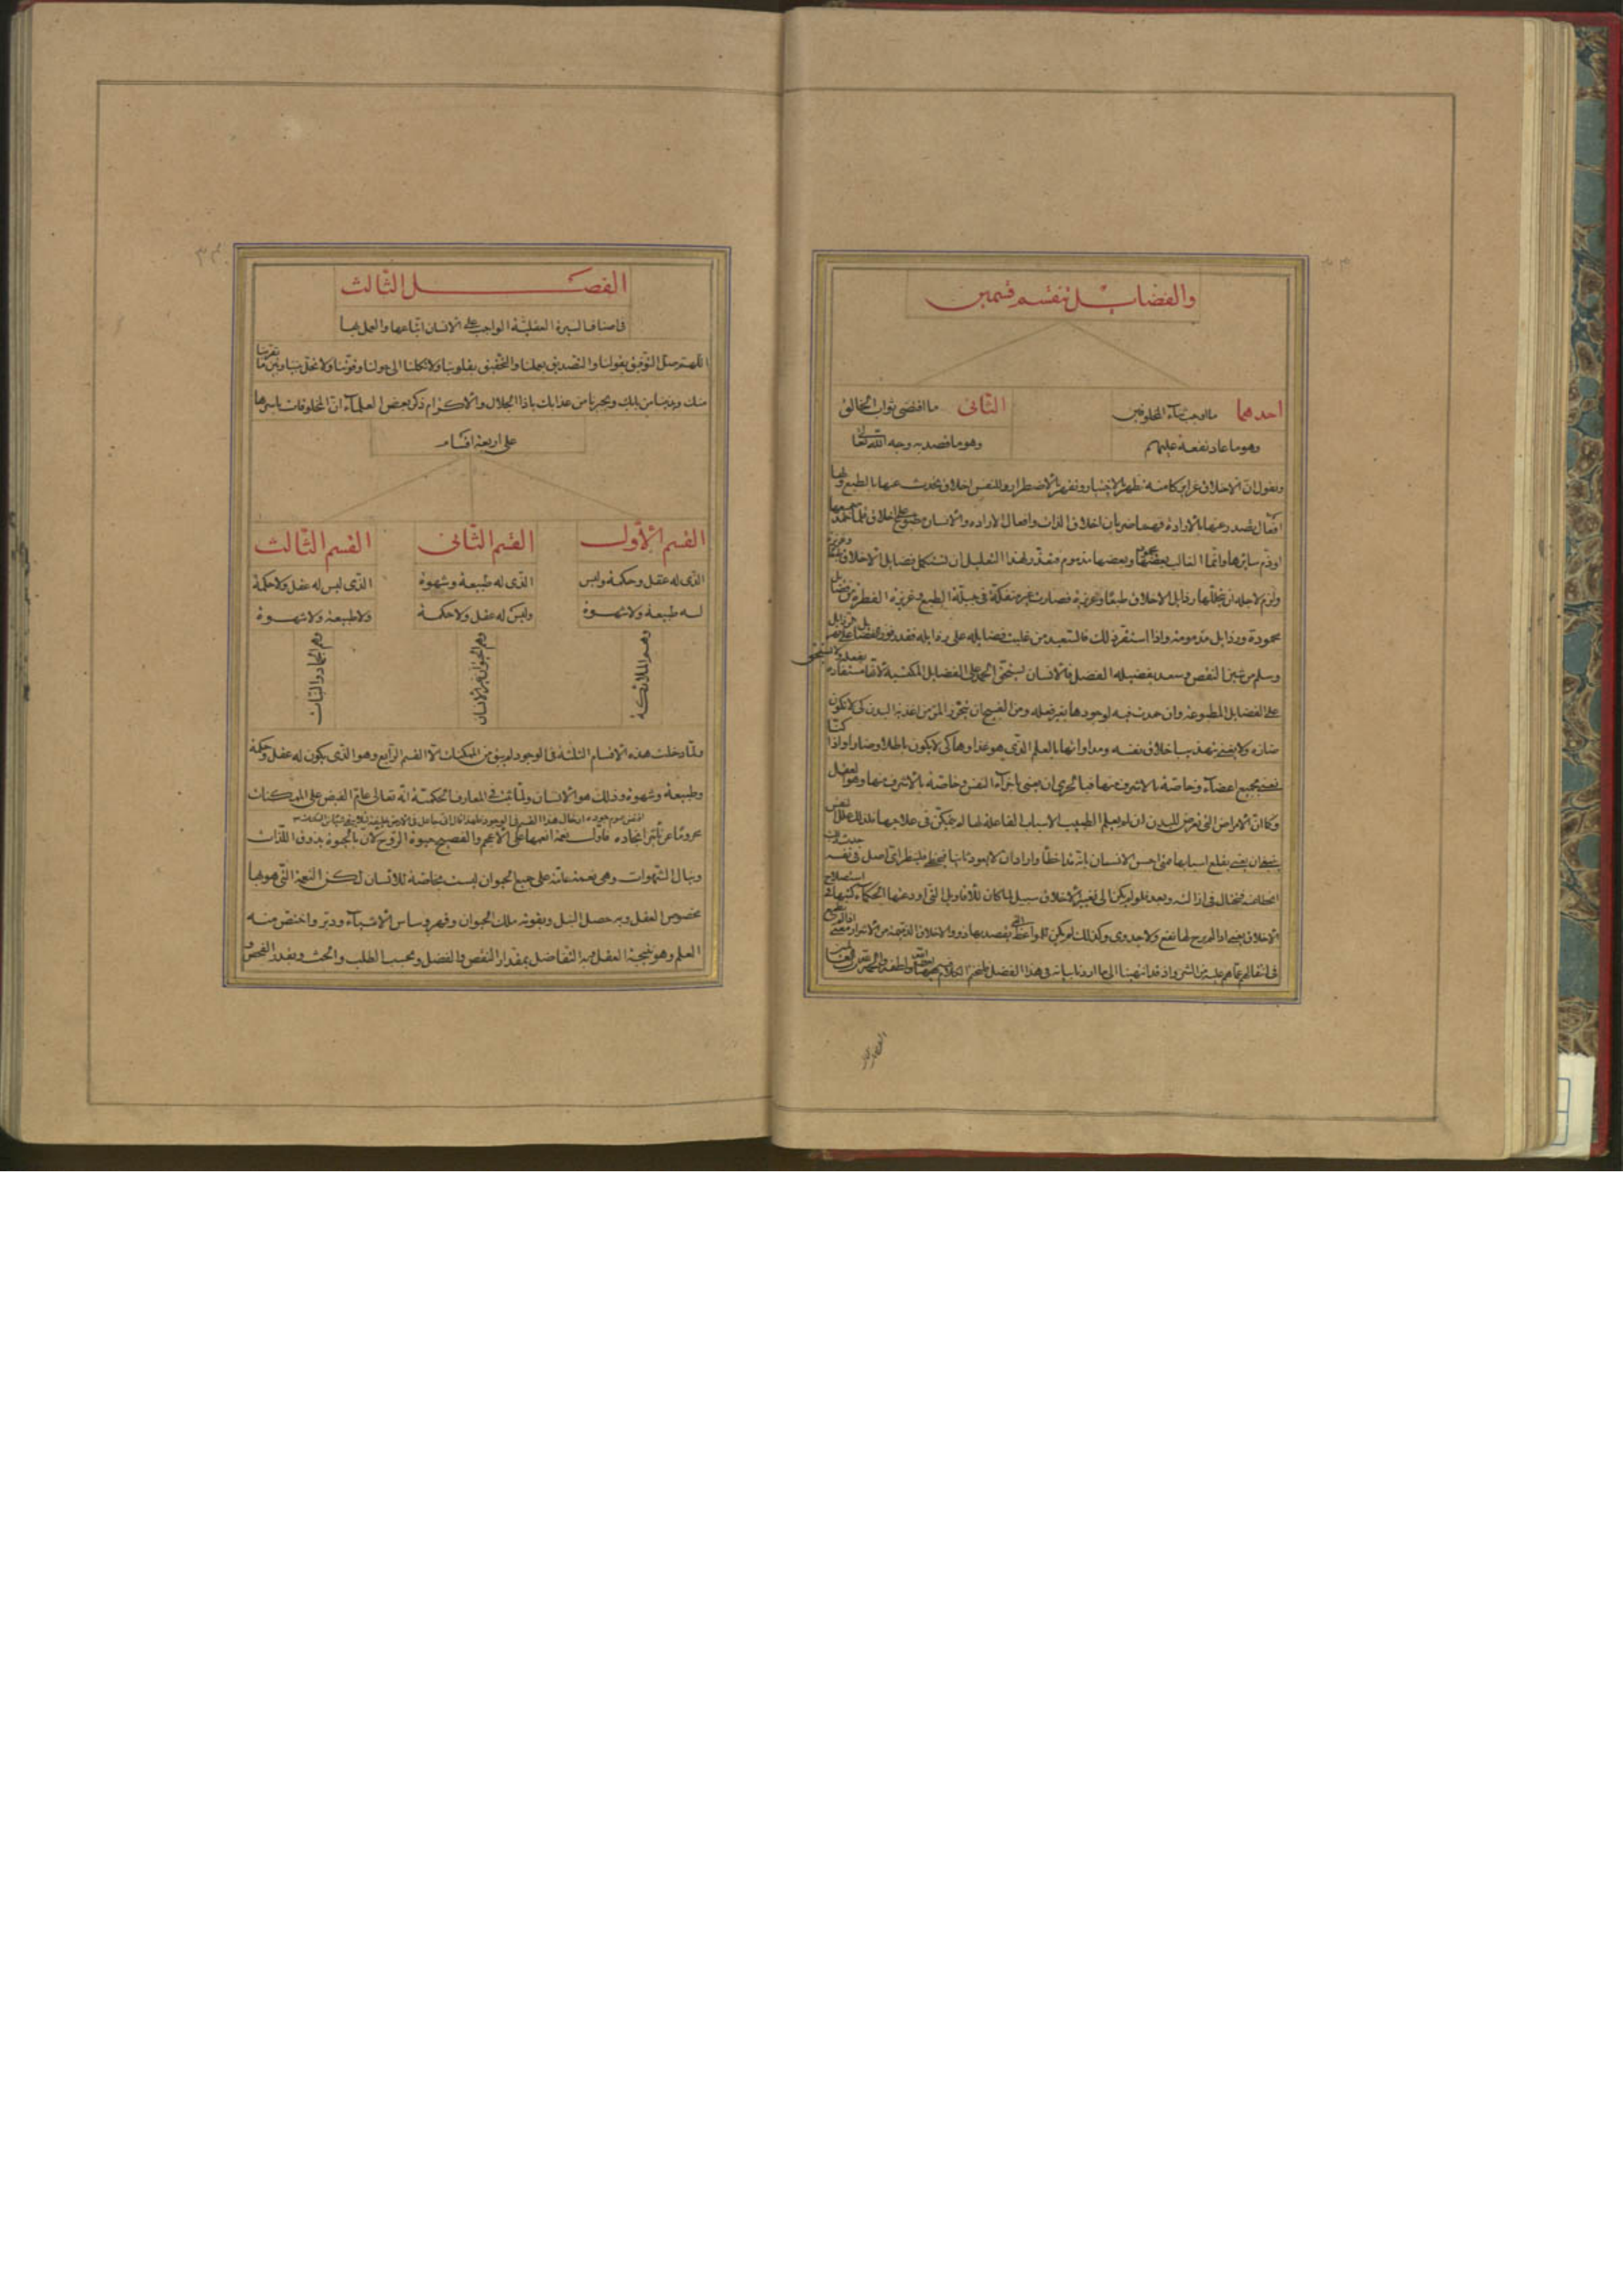 والفضايل تنقسم قسمين
احدهما ما اوجب ثناء المخلوقين
وهو ما عاد نفعه عليهم
الثانى ما اقتضى ثواب الخالق
وهو ما قصد به وجه الله تعالى
ونقول ان الاخلاق غرايز كامنه تظهر بالاختيار وتقهر بالاضطرار وللنفس اخلاق تحدث عنها بالطبع ولها
افعال تصدر عنها بالارادة فهما ضربان اخلاق الذات وافعال الارادة والانسان مطبوع على اخلاق قلما حمد جميعها
او ذم سايرها وانما الغالب بعضها محمود وبعضها مذموم فتعذر لهذا التعليل ان تستكمل فضايل الاخلاق طبعا وغريزة
ولزم لاجله ان يتخللها رذايل الاخلاق طبعا وغريزة فصارت غير منفكة فى جبلة الطبع وغريزة الفطرة من فضايل
محمودة ورذايل مذمومة واذا استقر ذلك فالسعيد من غلبت فضايله على رذايله فقدر بوفور الفضايل على قهر الرذايل
وسلم من شين النقص وسعد بفضيلة الفضل فالانسان يستحق الحمد على الفضايل المكتسبة لانها مستفادة بفعله ولا يستحق
على الفضايل المطبوعة وان حمدت فيه لوجودها بغير فعله ومن القبيح ان نتحرز المرء من اغذية البدن كى لا تكون
ضارة ولا يعنى بتهذيب اخلاق نفسه ومداواتها بالعلم الذى هو غذاوها كى لا يكون باطلا وضارا واذا كنا
نعنى بجميع اعضاء وخاصة بالاشرف منها فبالحرى ان نعنى باجزاء النفس وخاصة بالاشرف منها وهو العقل
وكما ان الامراض التى تعرض للبدن ان لم يعلم الطبيب الاسباب الفاعلة لها لم يتمكن فى علاجها كذلك علل النفس
ينبغى ان يعنى بقلع اسبابها متى احس الانسان بانه قد اخطا واراد ان لا يعود ثانيا فلينظر اى اصل فى نفسه حدث ذلك
الخطا عنه فيحتال فى ازالته وبعد فلو لم يكن الى تغيير الاخلاق سبيل لما كان للاقاويل التى اودعتها الحكماء كتبها فى استصلاح
الاخلاق نفع ولا جدوى وكذلك لم يكن للمواعظ التى يقصد بها ذوو الاخلاق الذميمة من الاشرار معنى
فى انتقالهم عما هم عليه من الشر واذ قد انتهينا الى ما اردنا بيانه فى هذا الفصل فلنختم الكلام
الفصل الثالث
فى اصناف السيرة العقلية الواجب على الانسان اتباعها والعمل بها
اللهم صل التوفيق بقولنا والتصديق بعملنا والتحقيق بقلوبنا ولا تكلنا الى حولنا وقوتنا ولا تحل بيننا وبين ما يقربنا
منك ويدنينا من بابك ويجيرنا من عذابك ياذا الجلال والاكرام ذكر بعض العلماء ان المخلوقات باسرها
على اربعة اقسام
القسم الاول
الذى له عقل وحكمة وليس
له طبيعة ولا شهوة
وهم الملائكة
القسم الثانى
الذى له طبيعة وشهوة
وليس له عقل ولا حكمة
وهم الحيوان غير الانسان
القسم الثالث
الذى ليس له عقل ولا حكمة
ولا طبيعة ولا شهوة
وهم الجماد والنبات
ولما دخلت هذه الاقسام الثلثة فى الوجود لم يبق من الممكنات الا القسم الرابع وهو الذى يكون له عقل وحكمة
وطبيعة وشهوة وذلك هو الانسان ولما ثبت فى المعارف الحكمية انه تعالى عام الفيض على الممكنات
محروما عن تاثير ايجاده فاول نعمة انعمها على الاعجم والفصيح حيوة الروح لان بالحيوة يذوق اللذات
وينال الشهوات وهى نعمة عامة على جميع الحيوان ليست بخاصة للانسان لكن النعمة التى هو بها
مخصوص العقل وبه حصل النبل وبقوته ملك الحيوان وقهر وساس الاشياء ودبر واختص منه
العلم وهو نتيجة العقل وبه التفاضل بمقدار النقص والفضل وبحسب الطلب والحث وبقدر الفحص